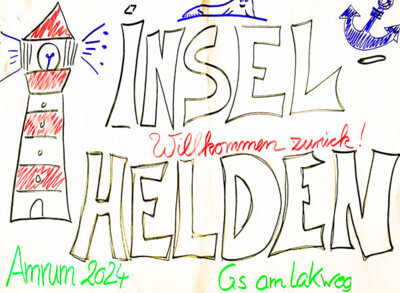 INSEL
Willkommen zurück!
HELDEN
Amrum 2024
Gs am Lakweg